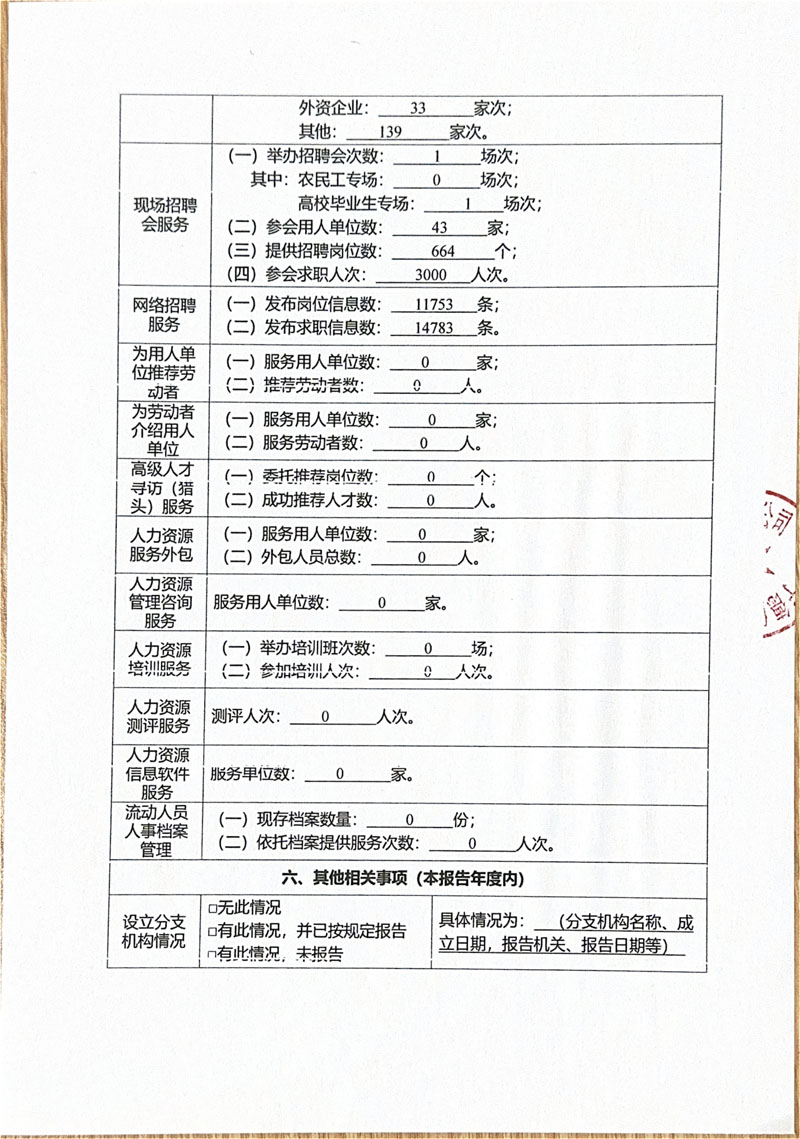 外资企业：33家次；
其他：139家次。
现场招聘
会服务
（一）举办招聘会次数：1场次；
其中：农民工专场：0场次；
高校毕业生专场：1场次；
（二）参会用人单位数：43家；
（三）提供招聘岗位数：664个；
（四）参会求职人次：3000人次。
网络招聘
服务
（一）发布岗位信息数：11753条；
（二）发布求职信息数：14783条。
为用人单
位推荐劳
动者
（一）服务用人单位数：0家；
（二）推荐劳动者数：0人。
为劳动者
介绍用人
单位
（一）服务用人单位数：0家；
（二）服务劳动者数：0人。
高级人才
寻访（猎
头）服务
（一）委托推荐岗位数：0个；
（二）成功推荐人才数：0人。
人力资源
服务外包
（一）服务用人单位数：0家；
（二）外包人员总数：0人。
人力资源
管理咨询
服务
服务用人单位数：0家。
人力资源
培训服务
（一）举办培训班次数：0场；
（二）参加培训人次：0人次。
人力资源
测评服务
测评人次：0人次。
人力资源
信息软件
服务
服务单位数：0家。
流动人员
人事档案
管理
（一）现存档案数量：0份；
（二）依托档案提供服务次数：0人次。
六、其他相关事项（本报告年度内）
设立分支
机构情况
□无此情况
□有此情况，并已按规定报告
□有此情况，未报告
具体情况为：（分支机构名称、成
立日期，报告机关、报告日期等）